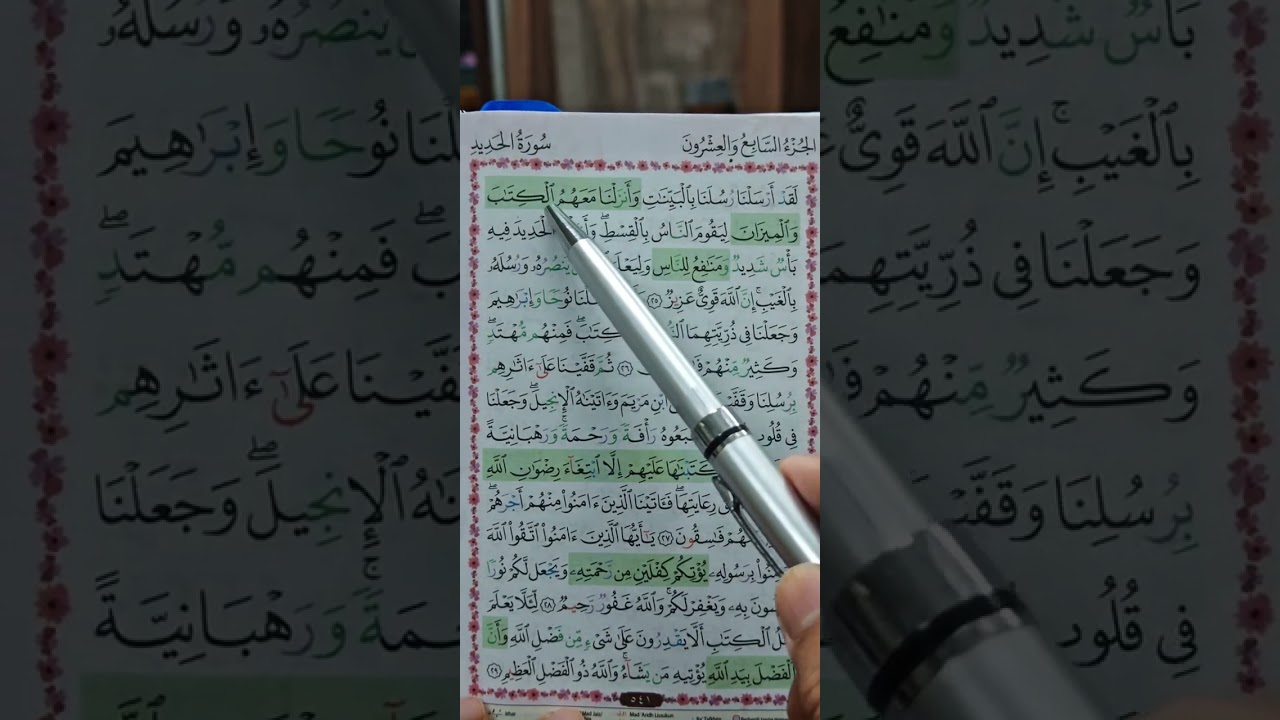 الجُزْءُ السَّابِعُ وَالعِشْرُونَ
سُورَةُ الحَدِيدِ
لَقَدْ أَرْسَلْنَا رُسُلَنَا بِٱلْبَيِّنَٰتِ وَأَنزَلْنَا مَعَهُمُ ٱلْكِتَٰبَ
وَٱلْمِيزَانَ لِيَقُومَ ٱلنَّاسُ بِٱلْقِسْطِۖ ٱلْحَدِيدَ فِيهِ
بَأْسٌ شَدِيدٌ وَمَنَٰفِعُ لِلنَّاسِ يَنصُرُهُۥ وَرُسُلَهُۥ
بِٱلْغَيْبِۚ إِنَّ ٱللَّهَ قَوِىٌّ عَزِيزٌ ٢٥ نُوحًا وَإِبْرَٰهِيمَ
وَجَعَلْنَا فِى ذُرِّيَّتِهِمَا فَمِنْهُم مُّهْتَدٍۖ
وَكَثِيرٌ مِّنْهُمْ ٢٦ ثُمَّ قَفَّيْنَا عَلَىٰٓ ءَاثَٰرِهِم
بِرُسُلِنَا ٱبْنِ مَرْيَمَ وَءَاتَيْنَٰهُ ٱلْإِنجِيلَۖ وَجَعَلْنَا
فِى رَأْفَةً وَرَحْمَةًۚ وَرَهْبَانِيَّةً
كَتَبْنَٰهَا عَلَيْهِمْ إِلَّا ٱبْتِغَآءَ رِضْوَٰنِ ٱللَّهِ
رِعَايَتِهَاۖ فَـَٔاتَيْنَا ٱلَّذِينَ ءَامَنُوا۟ مِنْهُمْ أَجْرَهُمْۖ
فَٰسِقُونَ ٢٧ يَٰٓأَيُّهَا ٱلَّذِينَ ءَامَنُوا۟ ٱتَّقُوا۟ ٱللَّهَ
بِرَسُولِهِۦ يُؤْتِكُمْ كِفْلَيْنِ مِن رَّحْمَتِهِۦ وَيَجْعَل لَّكُمْ نُورًا
بِهِۦ وَيَغْفِرْ لَكُمْۚ وَٱللَّهُ غَفُورٌ رَّحِيمٌ ٢٨ لِّئَلَّا يَعْلَمَ
ٱلْكِتَٰبِ أَلَّا يَقْدِرُونَ عَلَىٰ شَىْءٍ مِّن فَضْلِ ٱللَّهِ وَأَنَّ
ٱلْفَضْلَ بِيَدِ ٱللَّهِ يُؤْتِيهِ مَن يَشَآءُۚ وَٱللَّهُ ذُو ٱلْفَضْلِ ٱلْعَظِيمِ ٢٩
٥٤١